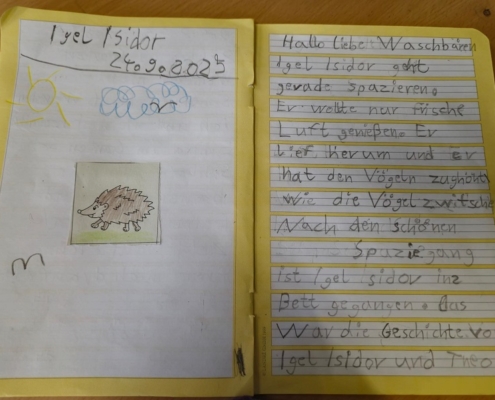 Igel Isidor
24.9.2025
Hallo liebe Waschbären
Igel Isidor geht
gerade spazieren.
Er wollte nur frische
Luft genießen. Er
lief herum und er
hat den Vögeln zughört
wie die Vögel zwitsche
Nach den schönen
Spaziegang
Ist Igel sidor inz
Bett gegangen. Das
War die Geschichte vo
Igel Isidor und Theo